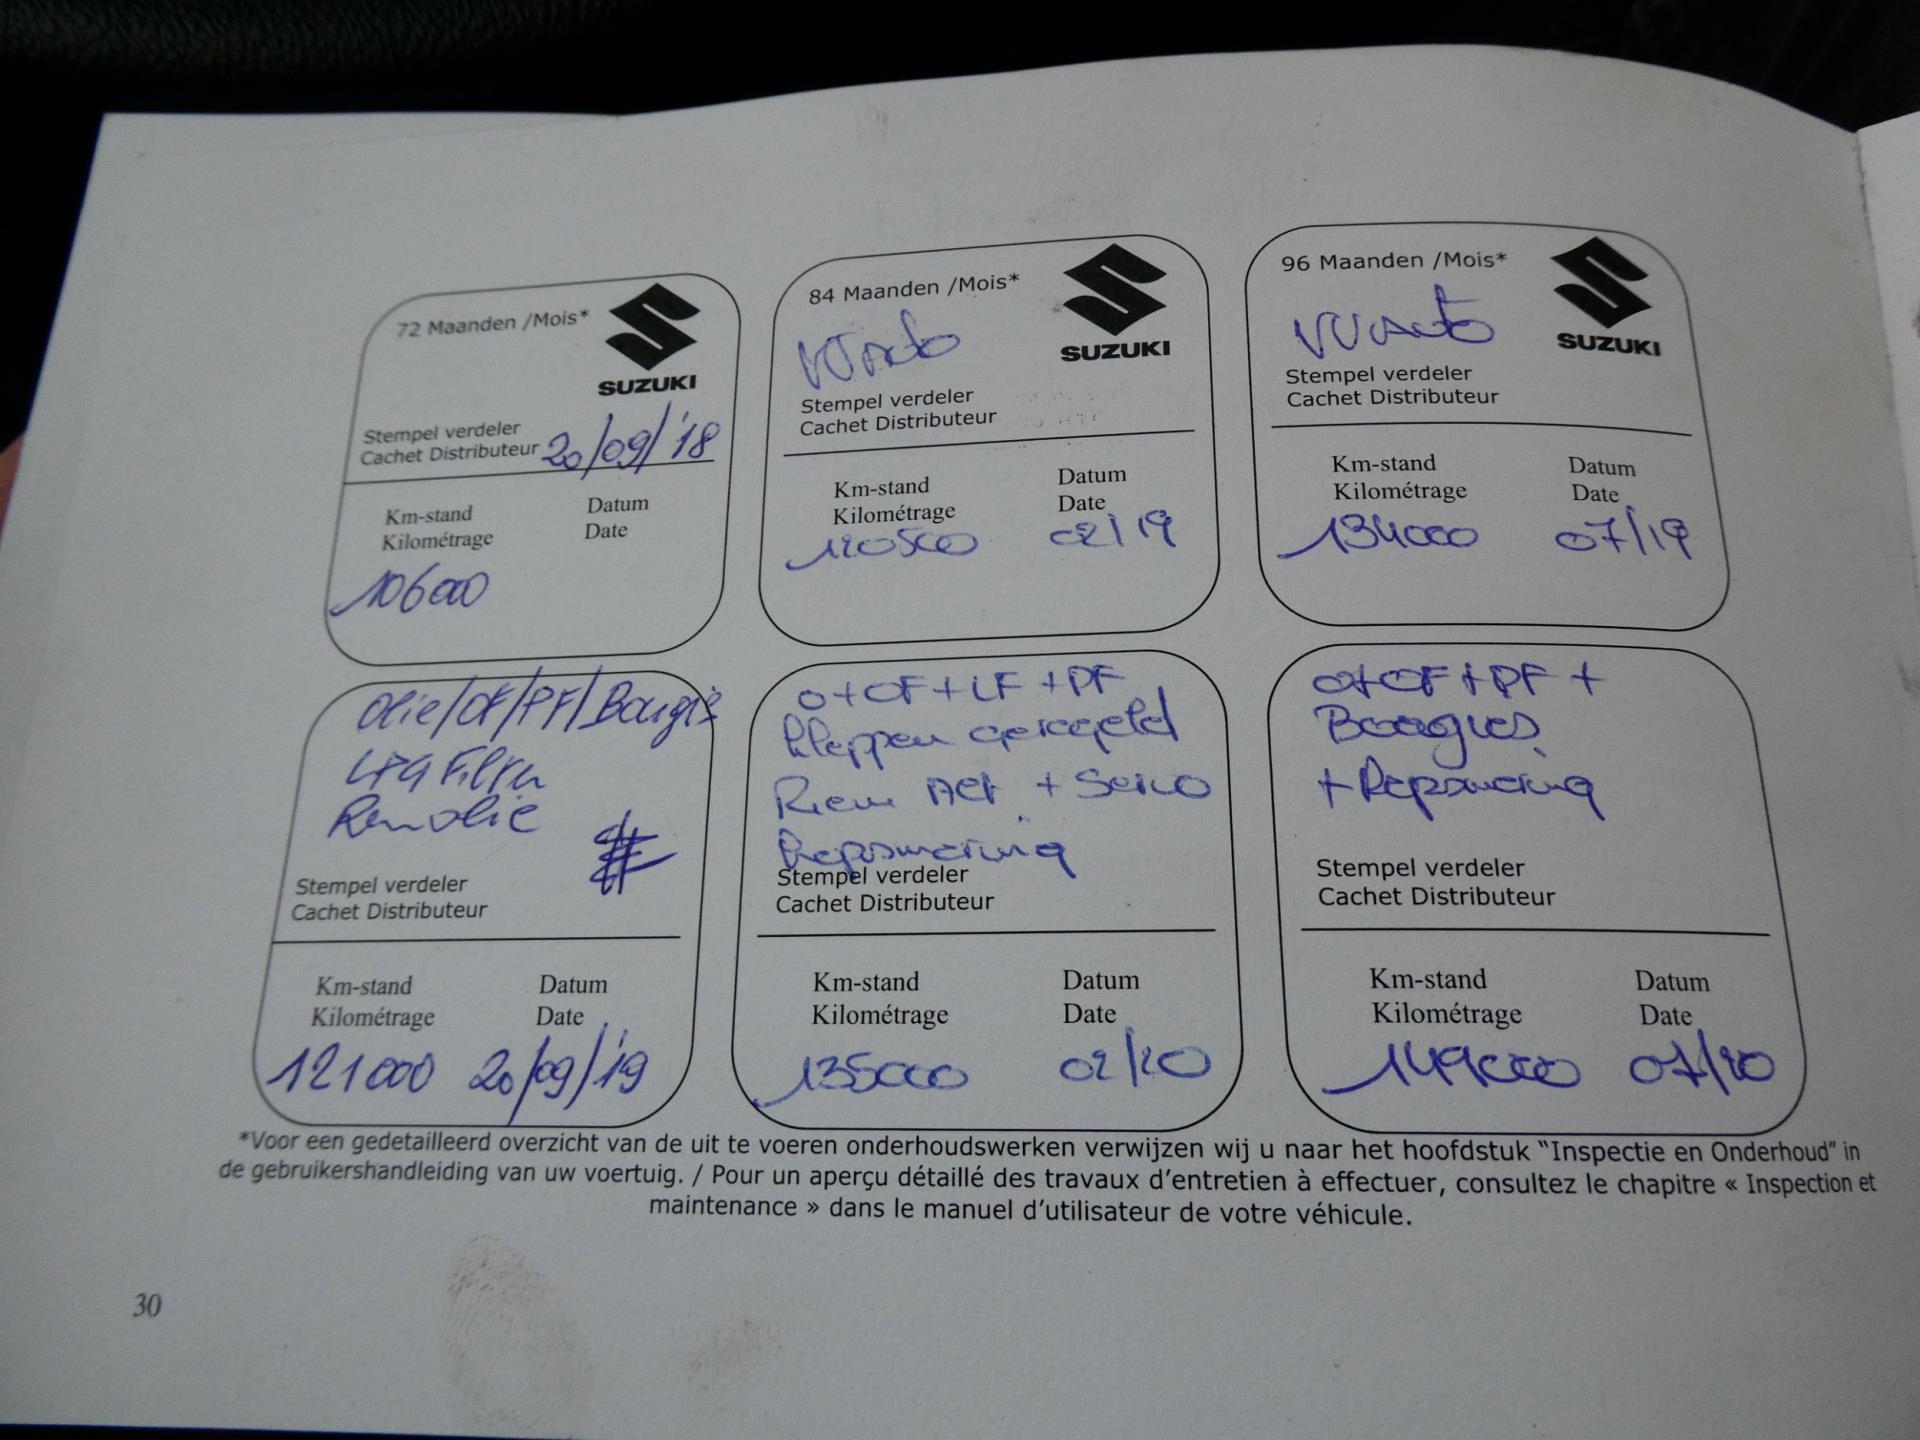 72 Maanden /Mois*
SUZUKI
Stempel verdeler
Cachet Distributeur 20/09/'18
Km-stand Datum
Kilométrage Date
106000
84 Maanden /Mois*
SUZUKI
Stempel verdeler
Cachet Distributeur
Km-stand Datum
Kilométrage Date
120500 02/19
96 Maanden /Mois*
VV Auto
SUZUKI
Stempel verdeler
Cachet Distributeur
Km-stand Datum
Kilométrage Date
134000 07/19
Olie/OF/PF/Bougie
LPG Filter
Remolie
Stempel verdeler
Cachet Distributeur
Km-stand Datum
Kilométrage Date
121000 20/09/'19
O+OF+LF+PF
kleppen geregeld
Riem Alt + Servo
Stempel verdeler
Cachet Distributeur
Km-stand Datum
Kilométrage Date
135000 02/20
O+OF+PF+
Bougies
Stempel verdeler
Cachet Distributeur
Km-stand Datum
Kilométrage Date
149000 07/20
*Voor een gedetailleerd overzicht van de uit te voeren onderhoudswerken verwijzen wij u naar het hoofdstuk “Inspectie en Onderhoud” in
de gebruikershandleiding van uw voertuig. / Pour un aperçu détaillé des travaux d’entretien à effectuer, consultez le chapitre « Inspection et
maintenance » dans le manuel d’utilisateur de votre véhicule.
30